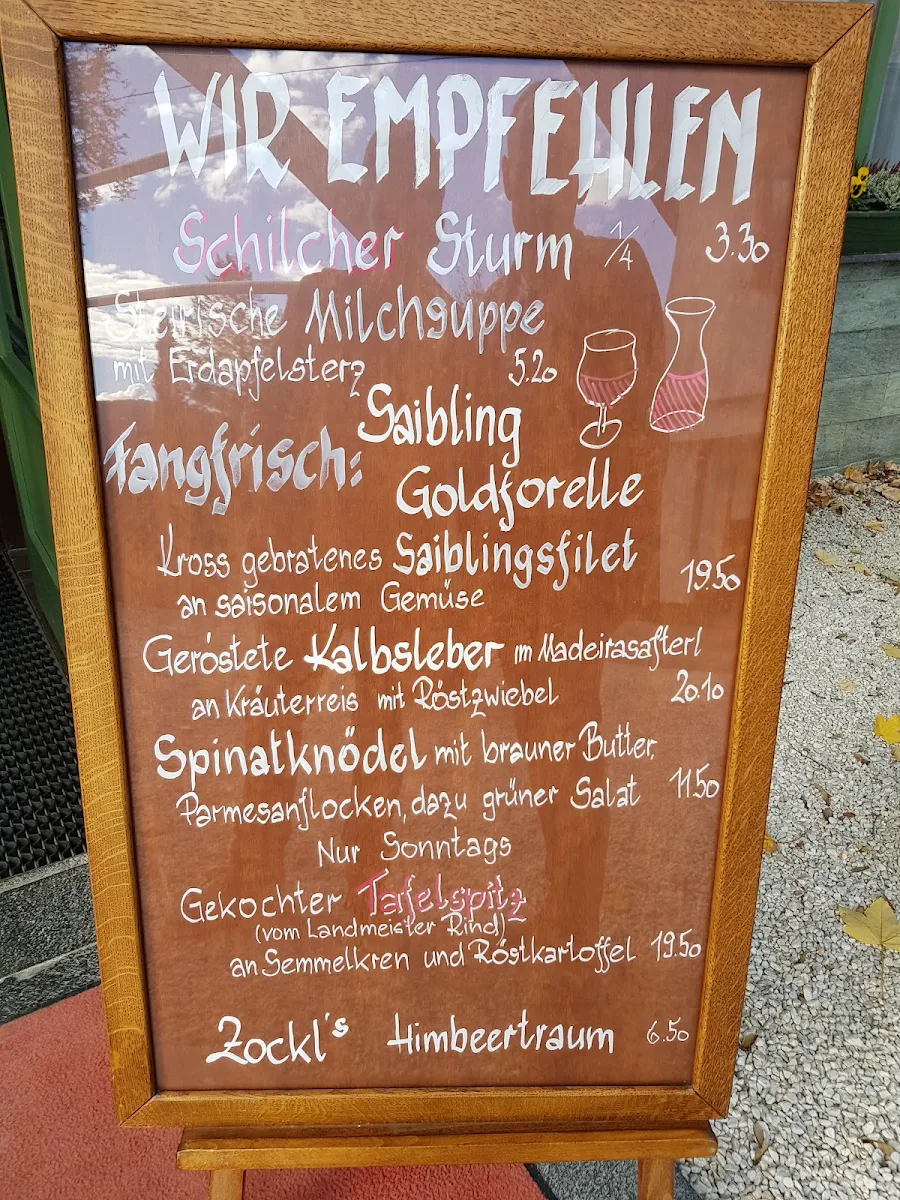 WIR EMPFEHLEN
Schilcher Sturm 1/4 3.30
Steirische Milchsuppe
mit Erdapfelsterz 5.20
Fangfrisch: Saibling
Goldforelle
Kross gebratenes Saiblingsfilet
an saisonalem Gemüse 19.50
Geröstete Kalbsleber im Madeirasafterl
an Kräuterreis mit Röstzwiebel 20.10
Spinatknödel mit brauner Butter,
Parmesanflocken, dazu grüner Salat 11.50
Nur Sonntags
Gekochter Tafelspitz
(vom Landmeister Rind)
an Semmelkren und Röstkartoffel 19.50
Zockl's Himbeertraum 6.50